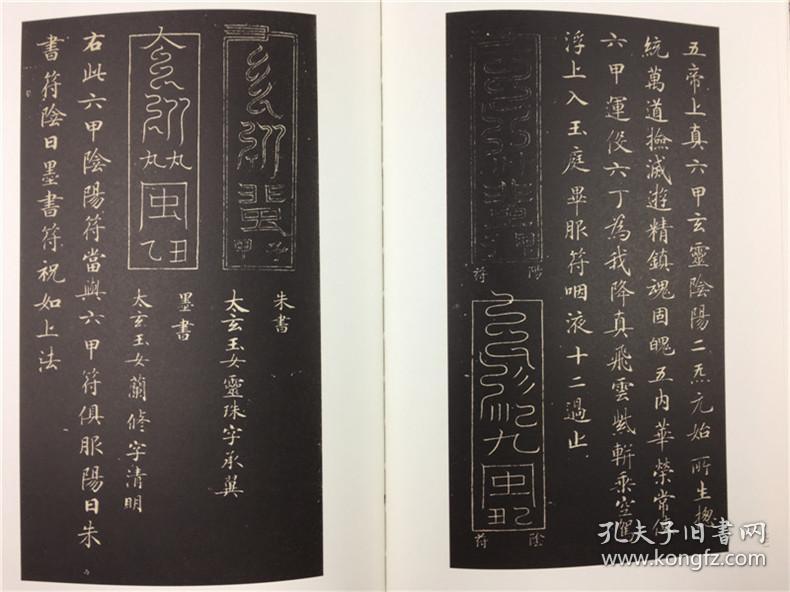 五帝上真六甲玄靈陰陽二炁元始所生揔
統萬道撿滅遊精鎮魂固魄五內華榮常使
六甲運役六丁為我降真飛雲紫軿乘空駕
浮上入玉庭畢服符咽液十二過止
陽符
陰符
甲子
朱書
太玄玉女靈珠字承翼
乙丑
墨書
太玄玉女蘭修字清明
右此六甲陰陽符當與六甲符俱服陽日朱
書符陰日墨書符祝如上法
孔夫子旧书网
www.kongfz.com